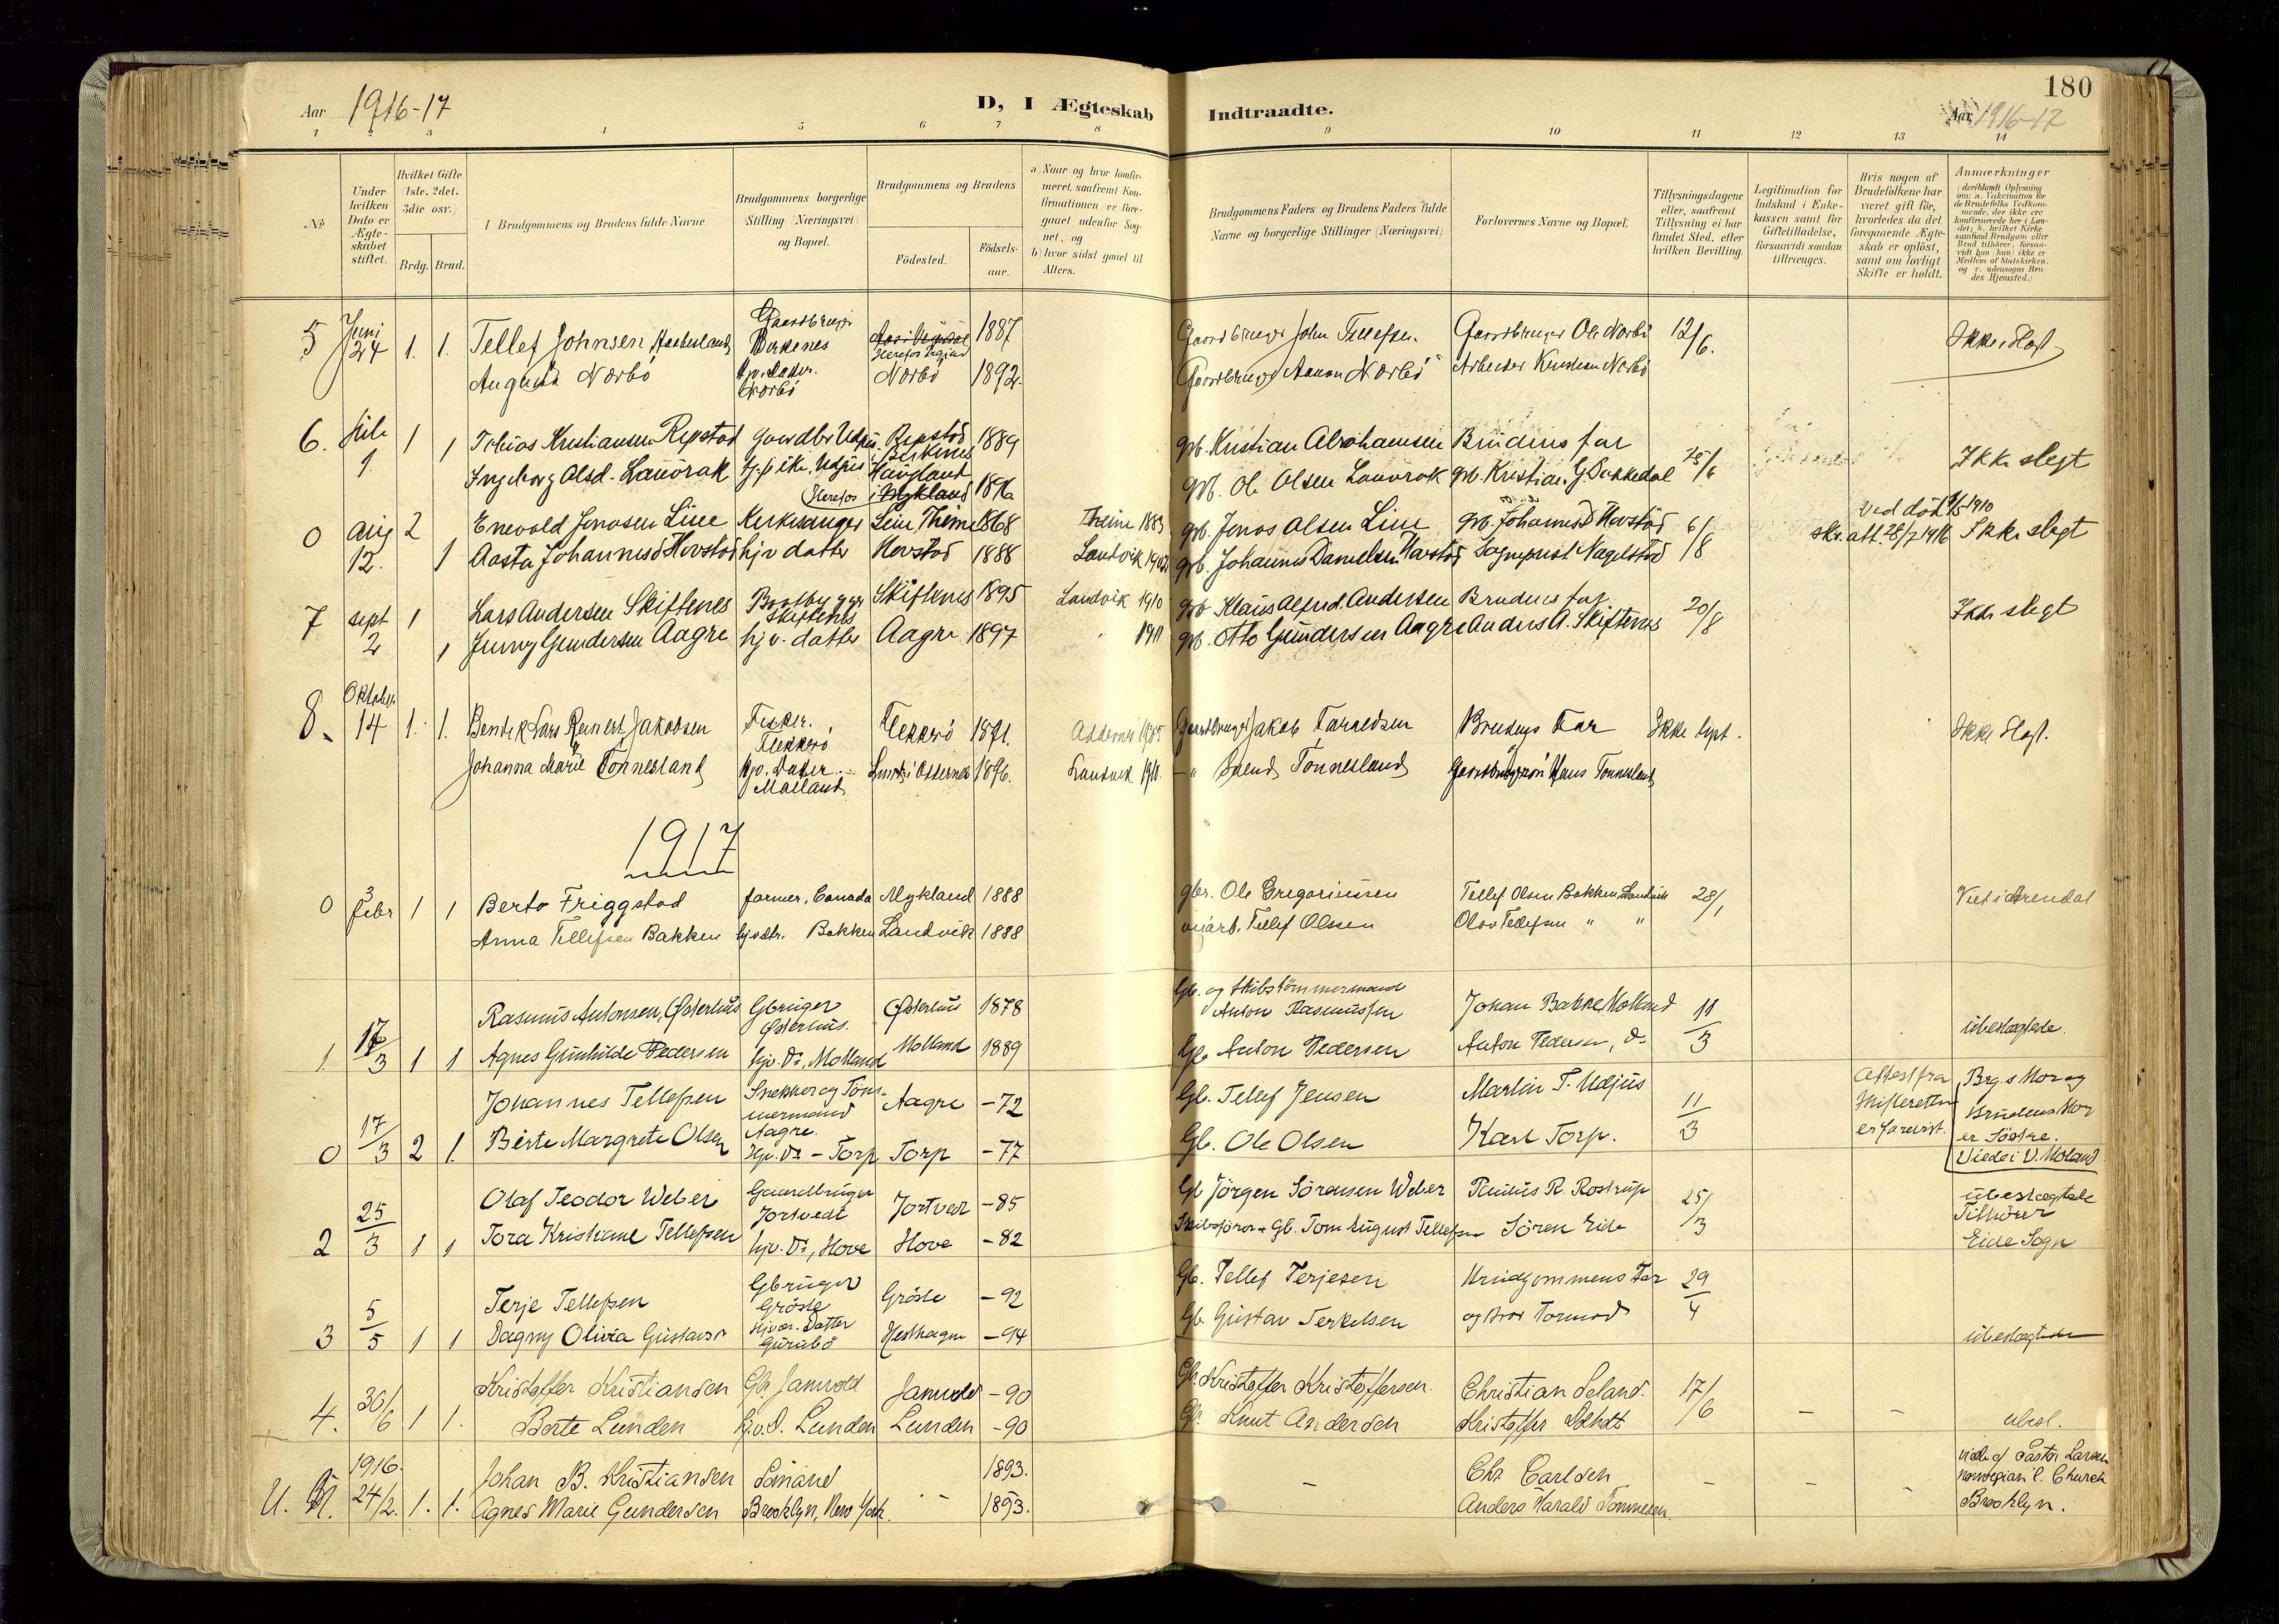 180
Aar 1916-17
D, I Ægteskab Indtraadte.
Aar 1916-17
1 2 3 4 5 6 7 8 9 10 11 12 13 14
No
Under hvilken Dato er Ægteskabet stiftet.
Hvilket Gifte (1ste, 2det, 3die osv.)
Brdg. Brud.
Brudgommens og Brudens fulde Navne
Brudgommens borgerlige Stilling (Næringsvei) og Bopæl.
Brudgommens og Brudens
Fødested.
Fødsels-aar.
a) Naar og hvor konfirmeret, saafremt Konfirmationen er foregaaet udenfor Sognet, og
b) hvor sidst gaaet til Alters.
Brudgommens Faders og Brudens Faders fulde Navne og borgerlige Stillinger (Næringsvei)
Forlovernes Navne og Bopæl.
Tillysningsdagene eller, saafremt Tillysning ei har fundet Sted, efter hvilken Bevilling.
Legitimation for Indskud i Enkekassen samt for Giftetilladelse, forsaavidt saadan tiltrænges.
Hvis nogen af Brudefolkene har været gift før, hvorledes da det foregaaende Ægteskab er opløst, samt om lovligt Skifte er holdt.
Anmærkninger
5 Juni 24 1. 1. Tellef Johnsen Birkenes 1887 Gaardbruger John Tellefsen. Gaardbruger Ole Norbö 12/6. Ikke Slegt
Augusta Norbö Hjv. Datter. Norbö Norbö 1892. Gaardbruger Aanon Norbö Arbeider Norbö
6. Juli 1. 1 1 Tobias Kristiansen Repstad Repstad Birkenes 1889 gb. Kristian Abrahamsen Brudens far 25/6 Ikke slegt
Ingeborg Olsd. Lauvrak Haugland 1896 gb. Ole Olsen Lauvrak gb. Kristian G. Dakkedal
0 aug 12. 2 1 Enevold Jonasen Line Kirkesanger Line Theime 1868 Theime 1883 gb. Jonas Olsen Line gb. Johannes D Hovstad 6/8 ved död 1910
skr. att. 28/7 1916 Ikke slegt
Aasta Johannesd Hovstad hjv datter Hovstad 1888 Landvik 1902 gb. Johannes Danielsen Hovstad Sogneprest Nagelstad
7 sept 2 1 1 Lars Andersen Skiftenes Skiftenes Skiftenes 1895 Landvik 1910 gb. Klaus Alfred Andersen Brudens far 20/8 Ikke slegt
Jenny Gundersen Aagre hjv. datter Aagre 1897 " 1911 gb. Otto Gundersen Aagre Anders A. Skiftenes
8. Oktober 14 1. 1. Bendik Lars Reinert Jakobsen Fisker. Flekkerö Flekkerö 1891. Oddernes Gaardbruger Jakob Taraldsen Brudens Far Ikke lyst. Ikke Slegt.
Johanna Marie Tönnesland Hjv. Datter Molland Lund i Oddernes 1896. Landvik 1910. — " Svend Tönnesland Hans Tönnesland
1917
0 3 Febr 1 1 Berto Friggstad farmer, Canada Mykland 1888 gbr. Ole Gregoriussen Tellef Olsen Bakken, Landvik 28/1 Viet i Arendal
Anna Tellefsen Bakken hjv.dtr. Bakken Landvik 1888 Tellef Olssen Olav Tellefsen " "
1. 17/3 1 1 Rasmus Antonsen, Østerhus Gbruger Østerhus. Østerhus 1878 Gb. og Skibstømmermand Anton Rasmussen Johan Bakke, Molland 11/3 ubeslægtede.
Agnes Gunhilde Pedersen hjv. Dr, Molland Molland 1889 Gb. Anton Pedersen Anton Pedersen, do
0 17/3 2 1. Johannes Tellefsen Snekker og Tömmermand Aagre. Aagre -72 Gb. Tellef Jensen Martin T. Udjus 11/3 Attest fra Skifteretten er forevist. Brg.s Mor og Brudens Mor er Søstre.
Viede i V. Moland
Birte Margrete Olsen Hjv. Dr - Torp Torp -77 Gb. Ole Olsen Karl Torp.
2 25/3 1 1 Olaf Teodor Weber Gaardbruger Jortvedt Jortvedt -85 Gb Jörgen Sörensen Weber Paulus R. Rostrup 25/3 ubeslægtede
Tilhörer Eide Sogn
Tora Kristiane Tellefsen hjv. Dr, Hove Hove -82 Skibsförer & Gb. Tom August Tellefsen Sören Eide
3 5/5 1 1 Terje Tellefsen Gbruger Gröste Gröste -92 Gb. Tellef Terjesen Brudgommens Far 29/4 ubeslægtede
Dagny Olivia Gustavsen Hjvær. Datter Hesthagen -94 Gb. Gustav Terkelsen og Bror Tormod
4. 30/6 1 1. Kristoffer Kristiansen Gb Jamvold Jamvold -90 Gb. Kristoffer Kristoffersen. Christian Leland. 17/6 - - ubesl.
Berte Lunden hj.v.D. Lunden Lunden -90 Gb. Knut Andersen Kristoffer
U. N. 1916. 24/2. 1. 1. Johan B. Kristiansen Sömand 1893. - Chr. Carlsen - - - viede af Pastor Larsen
Norwegian l. Church
Brooklyn.
Agnes Marie Gundersen Brooklyn, New York. 1893. Anders Harald Tönnesen.